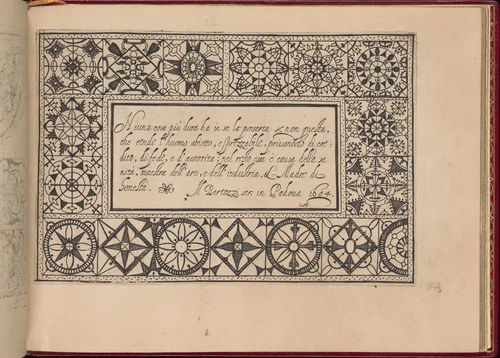 Niuna cosa più dura ha in se la pouerta se non questa,
che rende l'huomo abietto, e sprezzabile, priuandolo di cre-
dito, di fede, e d'autorita; nel resto essa è causa della sa
nita, maestra dell'arti, e dell'industria, & Madre di
honesta. M Bertozzi scr. in Padoua 1604